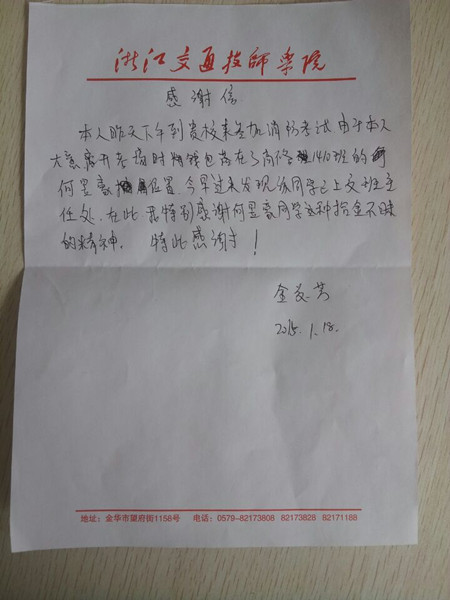 浙江交通技师学院
感谢信
本人昨天下午到贵校来参加消防考试由于本人
大意离开考场时将钱包落在了高修1410班的
何昱豪位置今早过来发现该同学已上交班主
任处.在此我特别感谢何昱豪同学这种拾金不昧
的精神. 特此感谢！
金
2015.1.18.
地址：金华市望府街1158号 电话：0579-82173808 82173828 82171188